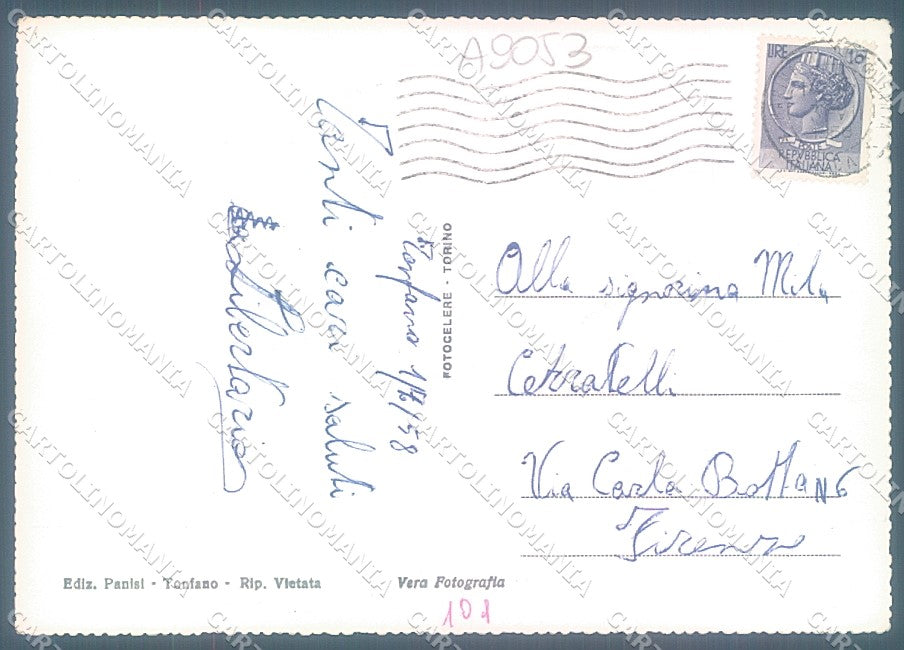 A9053
LIRE
POSTE
REPVBBLICA
ITALIANA
Tanti cari saluti
Tonfano 1/7/58
Libertario
FOTOCELERE - TORINO
Alla signorina Mila
Cerratelli
Via Carlo Botta N 6
Firenze
Ediz. Panisi - Tonfano - Rip. Vietata
Vera Fotografia
101
CARTOLINOMANIA